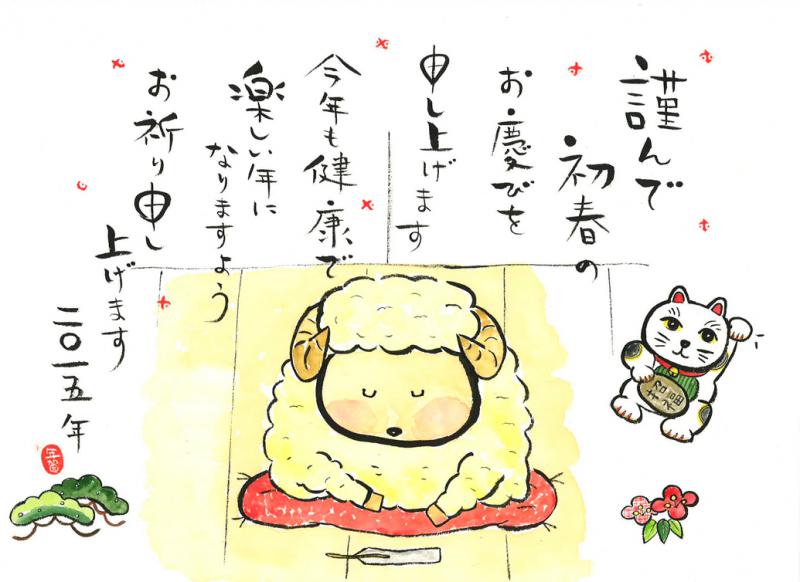 謹んで
初春の
お慶びを
申し上げます
今年も健康で
楽しい年に
なりますよう
お祈り申し
上げます
二〇一五年
年賀